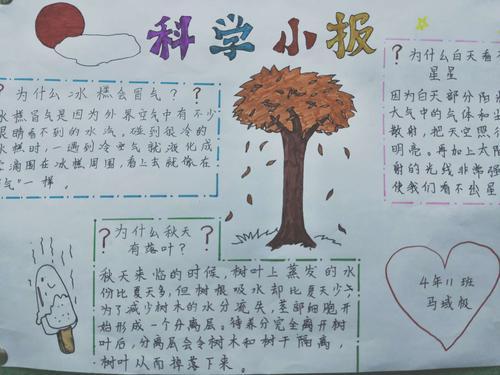 科学小报
?为什么冰糕会冒气??
冰糕冒气是因为外界空气中有不少
眼睛看不到的水汽,碰到很冷的
冰糕时,一遇到冷空气就液化成
滴围在冰糕周围,看上去就像在
气"一样。
?为什么白天看不
星星
因为白天部分阳
大气中的气体和
散射,把天空照
明亮。再加上太阳
射的光线非常强
使我们看不到星
?为什么秋天?
有落叶?
秋天来临的时候,树叶上蒸发的水
份比夏天多,但树根吸水却比夏天少,
为了减少树木的水分流失,茎部细胞开
始形成一个分离层。待养分完全离开树
叶后,分离层会令树木和树干隔离,
树叶从而掉落下来。
4年11班
马域